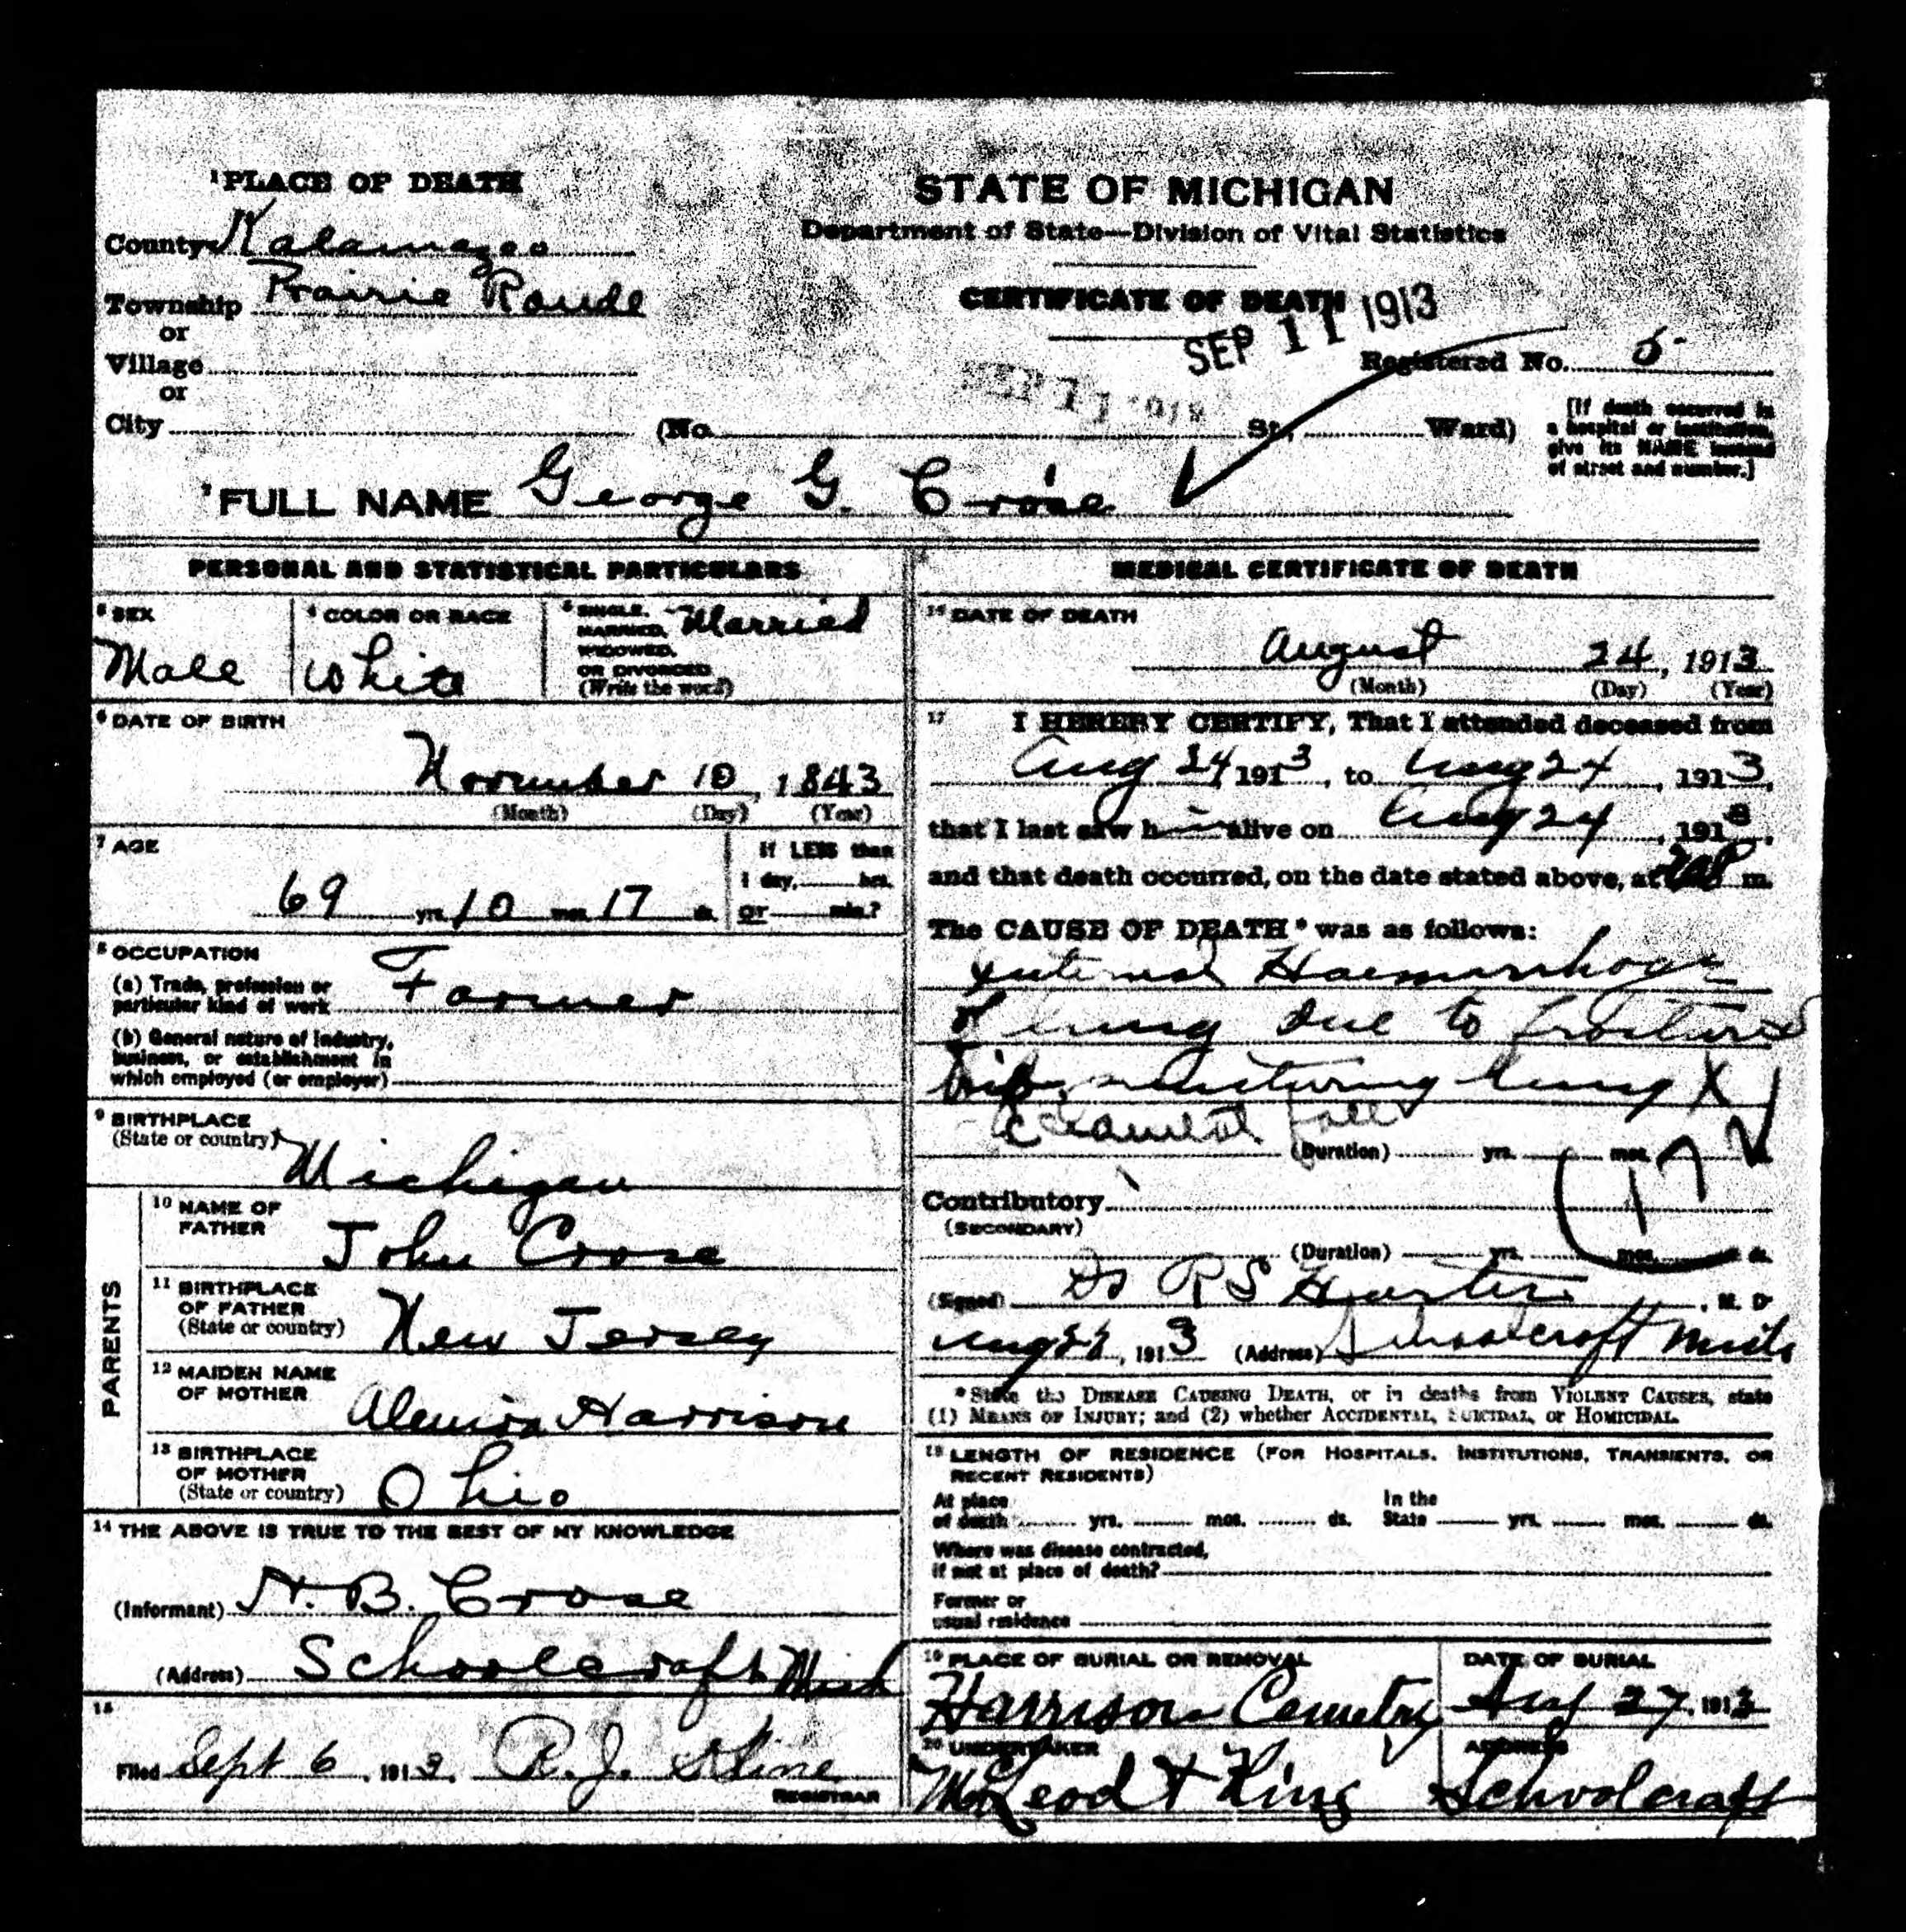 1 PLACE OF DEATH
STATE OF MICHIGAN
County Kalamazoo
Department of State—Division of Vital Statistics
Township Prairie Ronde
CERTIFICATE OF DEATH
SEP 11 1913
or
Village
Registered No. 5
or
City (No. St., Ward)
[If death occurred in
a hospital or institution,
give its NAME instead
of street and number.]
2 FULL NAME George G. Crose
PERSONAL AND STATISTICAL PARTICULARS
3 SEX
Male
4 COLOR OR RACE
White
5 SINGLE,
MARRIED,
WIDOWED,
OR DIVORCED
(Write the word)
Married
6 DATE OF BIRTH
November 10, 1843
(Month) (Day) (Year)
7 AGE
69 yrs. 10 mos. 17 ds.
If LESS than
1 day, hrs.
or min.?
8 OCCUPATION
(a) Trade, profession or
particular kind of work Farmer
(b) General nature of industry,
business, or establishment in
which employed (or employer)
9 BIRTHPLACE
(State or country) Michigan
PARENTS
10 NAME OF
FATHER John Crose
11 BIRTHPLACE
OF FATHER
(State or country) New Jersey
12 MAIDEN NAME
OF MOTHER Harrison
13 BIRTHPLACE
OF MOTHER
(State or country) Ohio
14 THE ABOVE IS TRUE TO THE BEST OF MY KNOWLEDGE
(Informant) H. B. Crose
(Address) Schoolcraft Mich
15
Filed Sept 6, 1913, R. J. Stine
REGISTRAR
MEDICAL CERTIFICATE OF DEATH
16 DATE OF DEATH
August 24, 1913
(Month) (Day) (Year)
17 I HEREBY CERTIFY, That I attended deceased from
Aug 24 1913, to Aug 24, 1913,
that I last saw h alive on Aug 24, 1913,
and that death occurred, on the date stated above, at m.
The CAUSE OF DEATH* was as follows:
Haemorrhage
of lung due to fractured
rib, lung X
fall
(Duration) yrs. mos.
172
Contributory
(SECONDARY)
(Duration) yrs. mos. ds.
(Signed) Dr R S , M. D.
Aug , 1913 (Address) Schoolcraft Mich
*State the DISEASE CAUSING DEATH, or in deaths from VIOLENT CAUSES, state
(1) MEANS OF INJURY; and (2) whether ACCIDENTAL, SUICIDAL, or HOMICIDAL.
18 LENGTH OF RESIDENCE (FOR HOSPITALS, INSTITUTIONS, TRANSIENTS, OR
RECENT RESIDENTS)
At place In the
of death yrs. mos. ds. State yrs. mos. ds.
Where was disease contracted,
if not at place of death?
Former or
usual residence
19 PLACE OF BURIAL OR REMOVAL
Harrison Cemetry
DATE OF BURIAL
Aug 27, 1913
20 UNDERTAKER
McLeod & King
ADDRESS
Schoolcraft